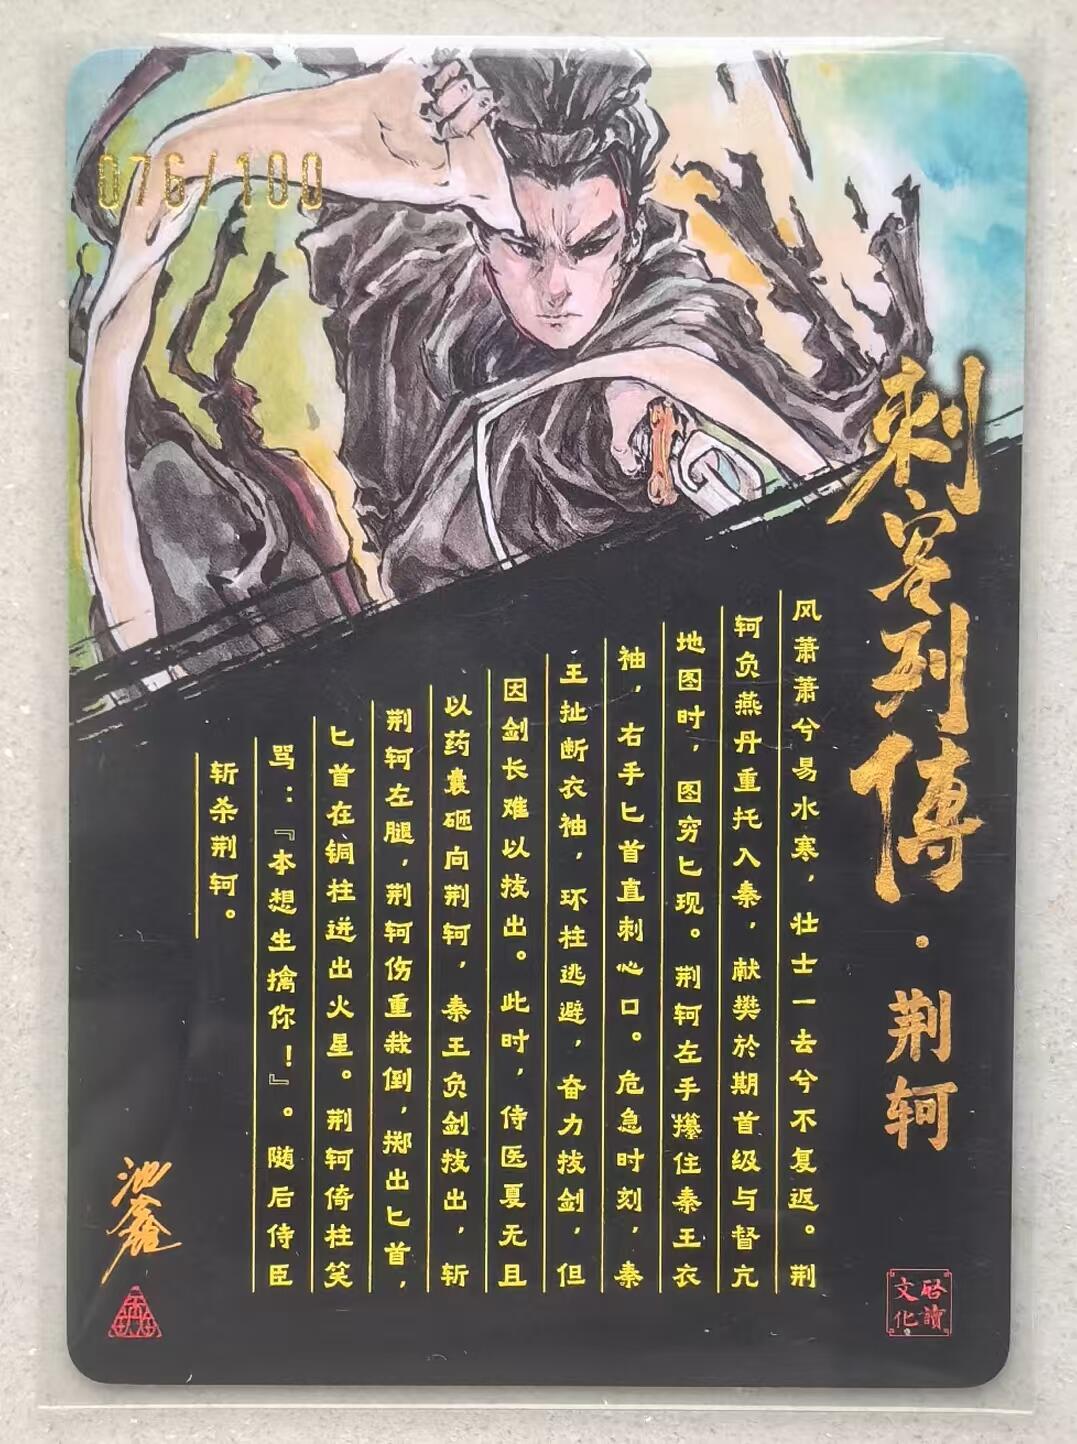 076/100
刺客列傳·荆轲
风萧萧兮易水寒，壮士一去兮不复返。荆
轲负燕丹重托入秦，献樊於期首级与督亢
地图时，图穷匕现。荆轲左手攥住秦王衣
袖，右手匕首直刺心口。危急时刻，秦
王扯断衣袖，环柱逃避，奋力拔剑，但
因剑长难以拔出。此时，侍医夏无且
以药囊砸向荆轲，秦王负剑拔出，斩
荆轲左腿，荆轲伤重栽倒，掷出匕首，
匕首在铜柱迸出火星。荆轲倚柱笑
骂：『本想生擒你！』。随后侍臣
斩杀荆轲。
池鑫
启讀
文化